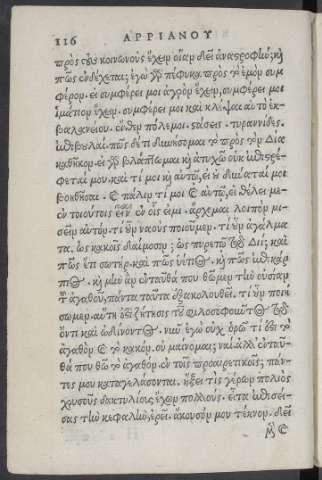 116 ΑΡΡΙΑΝΟΥ
πρὸς τοὺς κοινωνοὺς ἔχειν οἵαν δεῖ ἀναστροφήν; καὶ
πῶς ἐνδέχεται; ἐγὼ γὰρ πέφυκα πρὸς τὸ ἐμὸν συμ
φέρον. εἰ συμφέρει μοι ἀγρὸν ἔχειν, συμφέρει μοι
ἱμάτιον ἔχειν. συμφέρει μοι καὶ κλέψαι αὐτὸ ἐκ
βαλανείου. ἔνθεν πόλεμοι. στάσεις. τυραννίδες.
ἐπιβουλαί. πῶς δὲ ἔτι δυνήσομαι τὸ πρὸς τὸν Δία
καθῆκον. εἰ γὰρ βλάπτομαι καὶ ἀτυχῶ οὐκ ἐπιστρέ-
φεταί μου. καὶ τί μοι καὶ αὐτῷ, εἰ οὐ δύναταί μοι
βοηθῆσαι. καὶ πάλιν τί μοι καὶ αὐτῷ, εἰ θέλει με
ἐν τοιούτοις εἶναι ἐν οἷς εἰμι. ἄρχομαι λοιπὸν μι-
σεῖν αὐτόν. τί οὖν ναοὺς ποιοῦμεν. τί οὖν ἀγάλμα
τα. ὡς κακοῖς δαίμοσιν; ὡς πυρετῷ τῷ Διί; καὶ
πῶς ἔτι σωτὴρ. καὶ πῶς ὑέτιος. καὶ πῶς ἐπικάρ
πιος. καὶ μὴν ἂν ἐνταῦθά που θῶμεν τὴν οὐσίαν
τοῦ ἀγαθοῦ, πάντα ταῦτα ἐξακολουθεῖ. τί οὖν ποιή
σωμεν. αὕτη ἐστὶ ζήτησις τοῦ φιλοσοφοῦντος τῷ
ὄντι καὶ ὠδίνοντος. νῦν ἐγὼ οὐχ ὁρῶ τί ἐστι τὸ
ἀγαθὸν καὶ τὸ κακόν. οὐ μαίνομαι; ναὶ ἀλλ' ἐνταῦ-
θά που θῶ τὸ ἀγαθὸν ἐν τοῖς προαιρετικοῖς; πάν-
τες μου καταγελάσονται. ἥξει τὶς γέρων πολιὸς
χρυσοῦς δακτυλίους ἔχων πολλούς. εἶτα ἐπισεί-
σας τὴν κεφαλὴν, ἐρεῖ. ἄκουσόν μου τέκνον. δεῖ